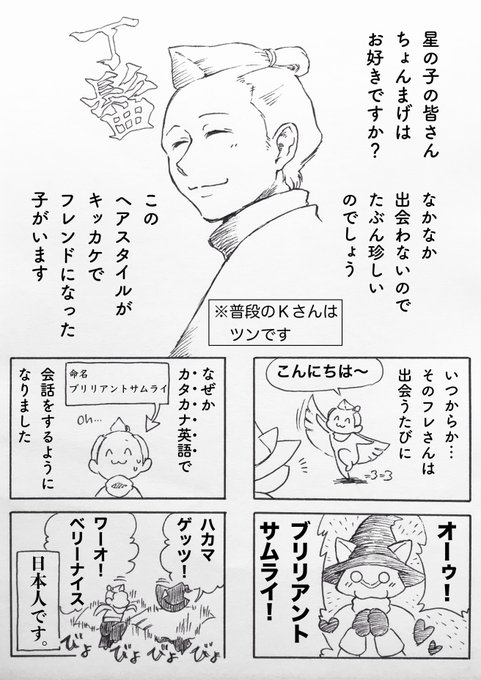 星の子の皆さん
ちょんまげは
お好きですか？
丁髷
なかなか
出会わないので
たぶん珍しい
のでしょう
この
ヘアスタイルが
キッカケで
フレンドになった
子がいます
※普段のKさんは
ツンです
いつからか…
そのフレさんは
出会うたびに
こんにちは〜
オーゥ！
ブリリアント
サムライ！
なぜか
カタカナ英語で
会話をするように
なりました
命名
ブリリアントサムライ
oh…
ハカマ
ゲッツ！
ワーオ！
ベリーナイス
日本人です。
びょ
びょ
びょ
びょ